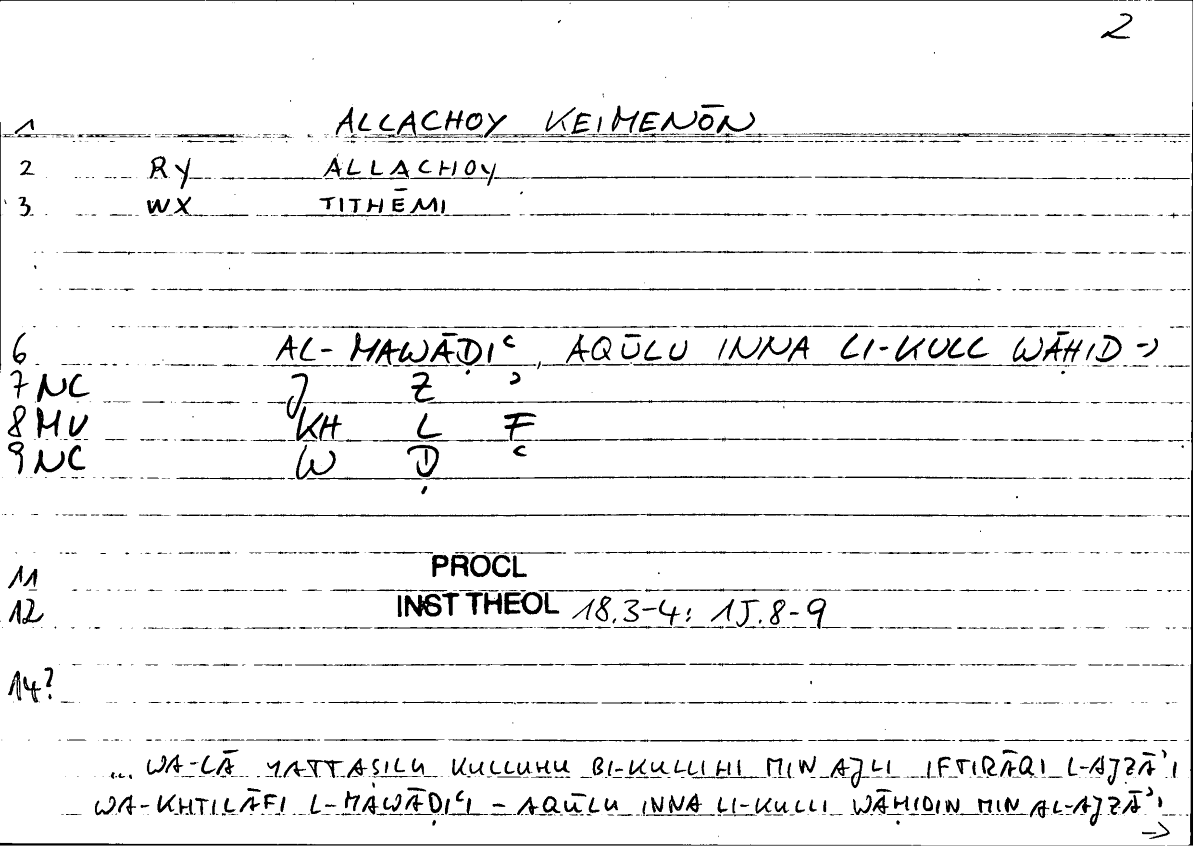 2
1 ALLACHOY KEIMENŌN
2 RY ALLACHOY
3 WX TITHĒMI
6 AL-MAWĀḌIʿ, AQŪLU INNA LI-KULL WĀḤID →
7 NC J Z ʾ
8 MV KH L F
9 NC W Ḍ ʿ
11 PROCL
12 INST THEOL 18.3-4: 15.8-9
14?
... WA-LĀ YATTAṢILU KULLUHU BI-KULLIHI MIN AJLI IFTIRĀQI L-AJZĀʾI
WA-KHTILĀFI L-MAWĀḌIʿI – AQŪLU INNA LI-KULLI WĀḤIDIN MIN AL-AJZĀʾI
→